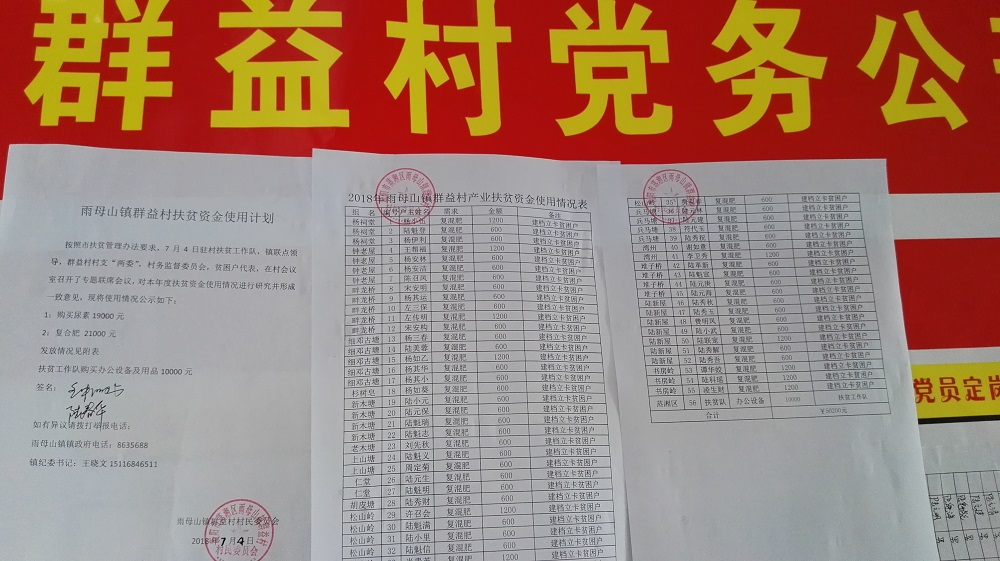 群益村党务公
雨母山镇群益村扶贫资金使用计划
按照市扶贫管理办法要求，7月4日驻村扶贫工作队，镇联点领
导，群益村村支“两委”，村务监督委员会，贫困户代表，在村会议
室召开了专题联席会议，对本年度扶贫资金使用情况进行研究并形成
一致意见，现将使用情况公示如下：
1：购买尿素19000元
2：复合肥 21000元
发放情况见附表
扶贫工作队购买办公设备及用品10000元
签名：
如有异议请拨打举报电话：
雨母山镇镇政府电话：8635688
镇纪委书记：王晓文 15116846511
雨母山镇群益村村民委员会
2018年7月4日
村民委员会
2018年雨母山镇群益村产业扶贫资金使用情况表
组 名 需求 金额 备注
杨祠堂 1 复混肥 1200 建档立卡贫困户
杨祠堂 2 陆魁登 复混肥 600 建档立卡贫困户
杨祠堂 3 杨伊利 复混肥 600 建档立卡贫困户
钟老屋 4 王帮福 复混肥 1200 建档立卡贫困户
钟老屋 5 杨安林 复混肥 600 建档立卡贫困户
钟老屋 6 杨安洁 复混肥 600 建档立卡贫困户
钟老屋 7 陈召风 复混肥 600 建档立卡贫困户
畔龙桥 8 宋安明 复混肥 600 建档立卡贫困户
畔龙桥 9 杨其运 复混肥 600 建档立卡贫困户
畔龙桥 10 左三保 复混肥 600 建档立卡贫困户
畔龙桥 11 左传明 复混肥 1200 建档立卡贫困户
畔龙桥 12 宋安构 复混肥 600 建档立卡贫困户
细邓古塘 13 杨三春 复混肥 600 建档立卡贫困户
细邓古塘 14 陆美蓉 复混肥 600 建档立卡贫困户
细邓古塘 15 杨如乙 复混肥 1200 建档立卡贫困户
细邓古塘 16 杨其华 复混肥 600 建档立卡贫困户
细邓古塘 17 杨其小 复混肥 600 建档立卡贫困户
杉树皂 18 杨如葵 复混肥 600 建档立卡贫困户
新木塘 19 陆小元 复混肥 600 建档立卡贫困户
新木塘 20 陆元保 复混肥 600 建档立卡贫困户
新木塘 21 陆魁瑞 复混肥 600 建档立卡贫困户
新木塘 22 陆魁志 复混肥 600 建档立卡贫困户
老木塘 23 刘先秋 复混肥 600 建档立卡贫困户
上山塘 24 陆魁义 复混肥 600 建档立卡贫困户
上山塘 25 周定菊 复混肥 600 建档立卡贫困户
仁堂 26 陆元生 复混肥 600 建档立卡贫困户
仁堂 27 陆魁明 复混肥 600 建档立卡贫困户
胡皮塘 28 陆秀财 复混肥 600 建档立卡贫困户
松山岭 29 许召会 复混肥 1200 建档立卡贫困户
松山岭 30 陆魁满 复混肥 600 建档立卡贫困户
松山岭 31 陆小里 复混肥 600 建档立卡贫困户
松山岭 32 陆魁信 复混肥 600 建档立卡贫困户
松山岭 35 复混肥 600 建档立卡贫困户
兵马塘 36 复混肥 600 建档立卡贫困户
兵马塘 37 复混肥 600 建档立卡贫困户
兵马塘 38 复混肥 600 建档立卡贫困户
兵马塘 39 陆秀按 复混肥 600 建档立卡贫困户
湾州 40 谢如意 复混肥 600 建档立卡贫困户
湾州 41 李卫秀 复混肥 1200 建档立卡贫困户
堆子桥 42 陆革新 复混肥 600 建档立卡贫困户
堆子桥 43 陆魁宝 复混肥 600 建档立卡贫困户
堆子桥 44 陆元庚 复混肥 600 建档立卡贫困户
堆子桥 45 陆元海 复混肥 600 建档立卡贫困户
陆新屋 46 陆秀秋 复混肥 600 建档立卡贫困户
陆新屋 47 陆秀玉 复混肥 600 建档立卡贫困户
陆新屋 48 费明凤 复混肥 600 建档立卡贫困户
陆新屋 49 陆小武 复混肥 1200 建档立卡贫困户
陆新屋 50 陆联宠 复混肥 600 建档立卡贫困户
陆新屋 51 陆秀解 复混肥 600 建档立卡贫困户
陆新屋 52 陆秀吾 复混肥 600 建档立卡贫困户
书房岭 53 谭华姣 复混肥 1200 建档立卡贫困户
书房岭 54 陆科瑶 复混肥 1200 建档立卡贫困户
书房岭 55 凌生财 复混肥 1200 建档立卡贫困户
蒸湘区 56 扶贫队 办公设备 10000 扶贫工作队
合计 ￥50200元
党员定岗